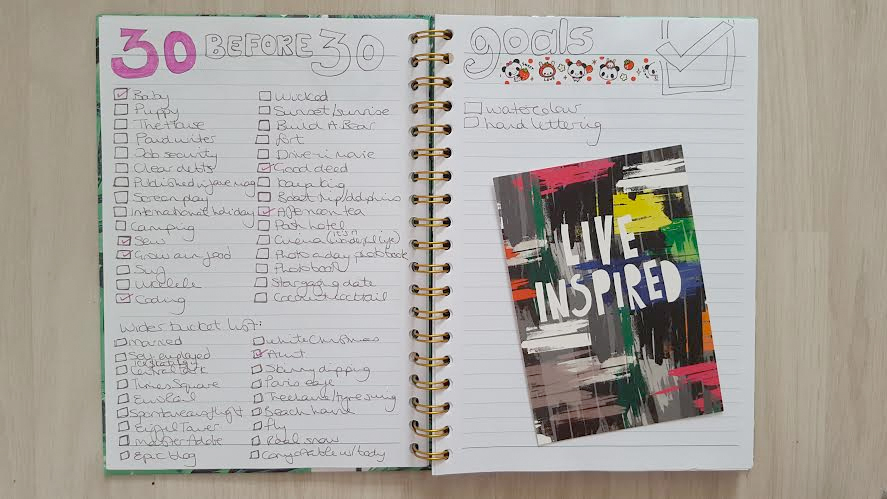 30 BEFORE 30
Baby
Puppy
The House
Paid writer
Job security
Clear debts
Published in fave mag
Screenplay
International holiday
Camping
Sew
Grow own food
Sing
Ukelele
Coding
Wicked
Sunset/sunrise
Build A Bear
Art
Drive-in movie
Good deed
Kayaking
Boat trip/dolphins
Afternoon tea
Posh hotel
Cinema (it's a wonderful life)
Photo a day photobook
Photobooth
Stargazing date
Coconut cocktail
Wider bucket list:
Married
Self employed
ice skating @
Central Park
Times Square
Eurorail
Spontaneous flight
Eiffel Tower
Master Adobe
Epic blog
White Christmas
Aunt
Skinny dipping
Paris
Treehouse/tyre swing
Beach house
Fly
Real snow
Comfortable w/body
goals
watercolour
hand lettering
LIVE
INSPIRED